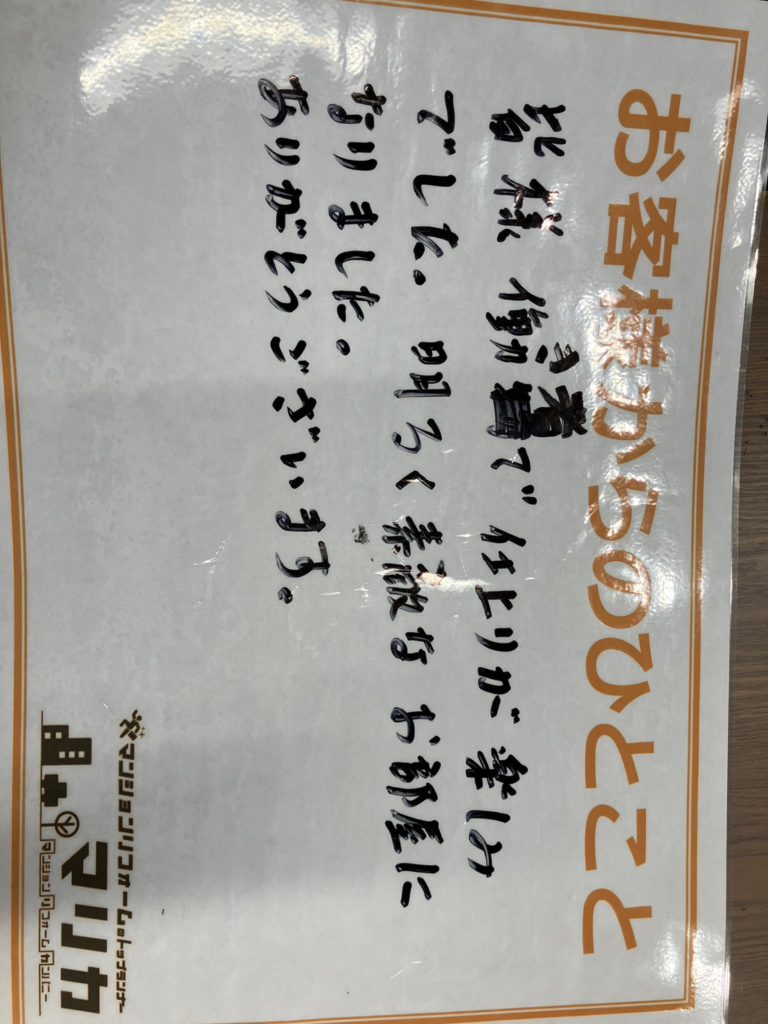 お客様からのひとこと
皆様 働き者で 仕上りが 楽しみ
でした。 明るく 素敵な お部屋に
なりました。
ありがとうございます。
マンションリフォームのトップランナー
マリカ
マンションリフォームカンパニー